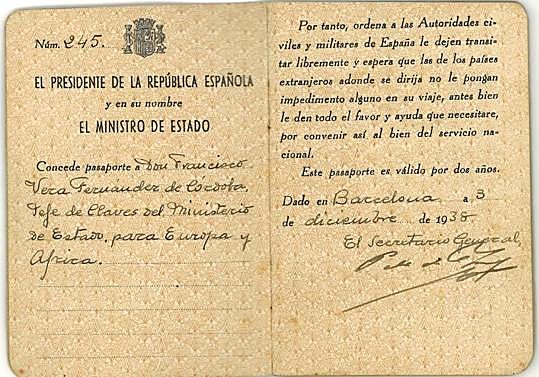 Núm. 245.
EL PRESIDENTE DE LA REPÚBLICA ESPAÑOLA
y en su nombre
EL MINISTRO DE ESTADO
Concede pasaporte a Don Francisco
Vera Fernandez de Córdoba,
Jefe de Claves del Ministerio
de Estado, para Europa y
Africa.
Por tanto, ordena a las Autoridades ci-
viles y militares de España le dejen transi-
tar libremente y espera que las de los países
extranjeros adonde se dirija no le pongan
impedimento alguno en su viaje, antes bien
le den todo el favor y ayuda que necesitare,
por convenir así al bien del servicio na-
cional.
Este pasaporte es válido por dos años.
Dado en Barcelona a 3
de diciembre de 1938
El Secretario General,